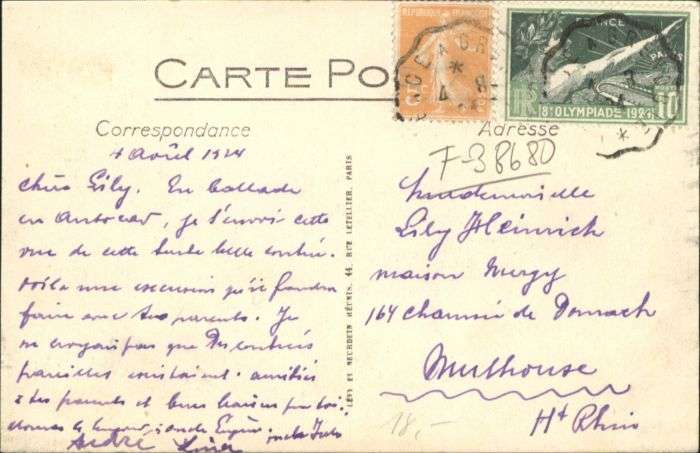 CARTE PO
Correspondance
4 Août 1924
chère Lily. En ballade
en Autocar, je t'envoi cette
vue de cette toute belle contrée.
Voilà une excursion qu'il faudra
faire avec tes parents. Je
ne croyais pas que des contrées
pareilles existaient. amitiés
à tes parents et bons baisers pour toi.
André
LÉVY ET NEURDEIN RÉUNIS, 44, RUE LETELLIER, PARIS
REPUBLIQUE FRANCAISE
FRANCE
PARIS
8e OLYMPIADE 1924
10
Adresse
7-38680
Mademoiselle
Lily Heinrich
maison
164 Chaussée de Dornach
Mulhouse
Ht Rhin
18,-